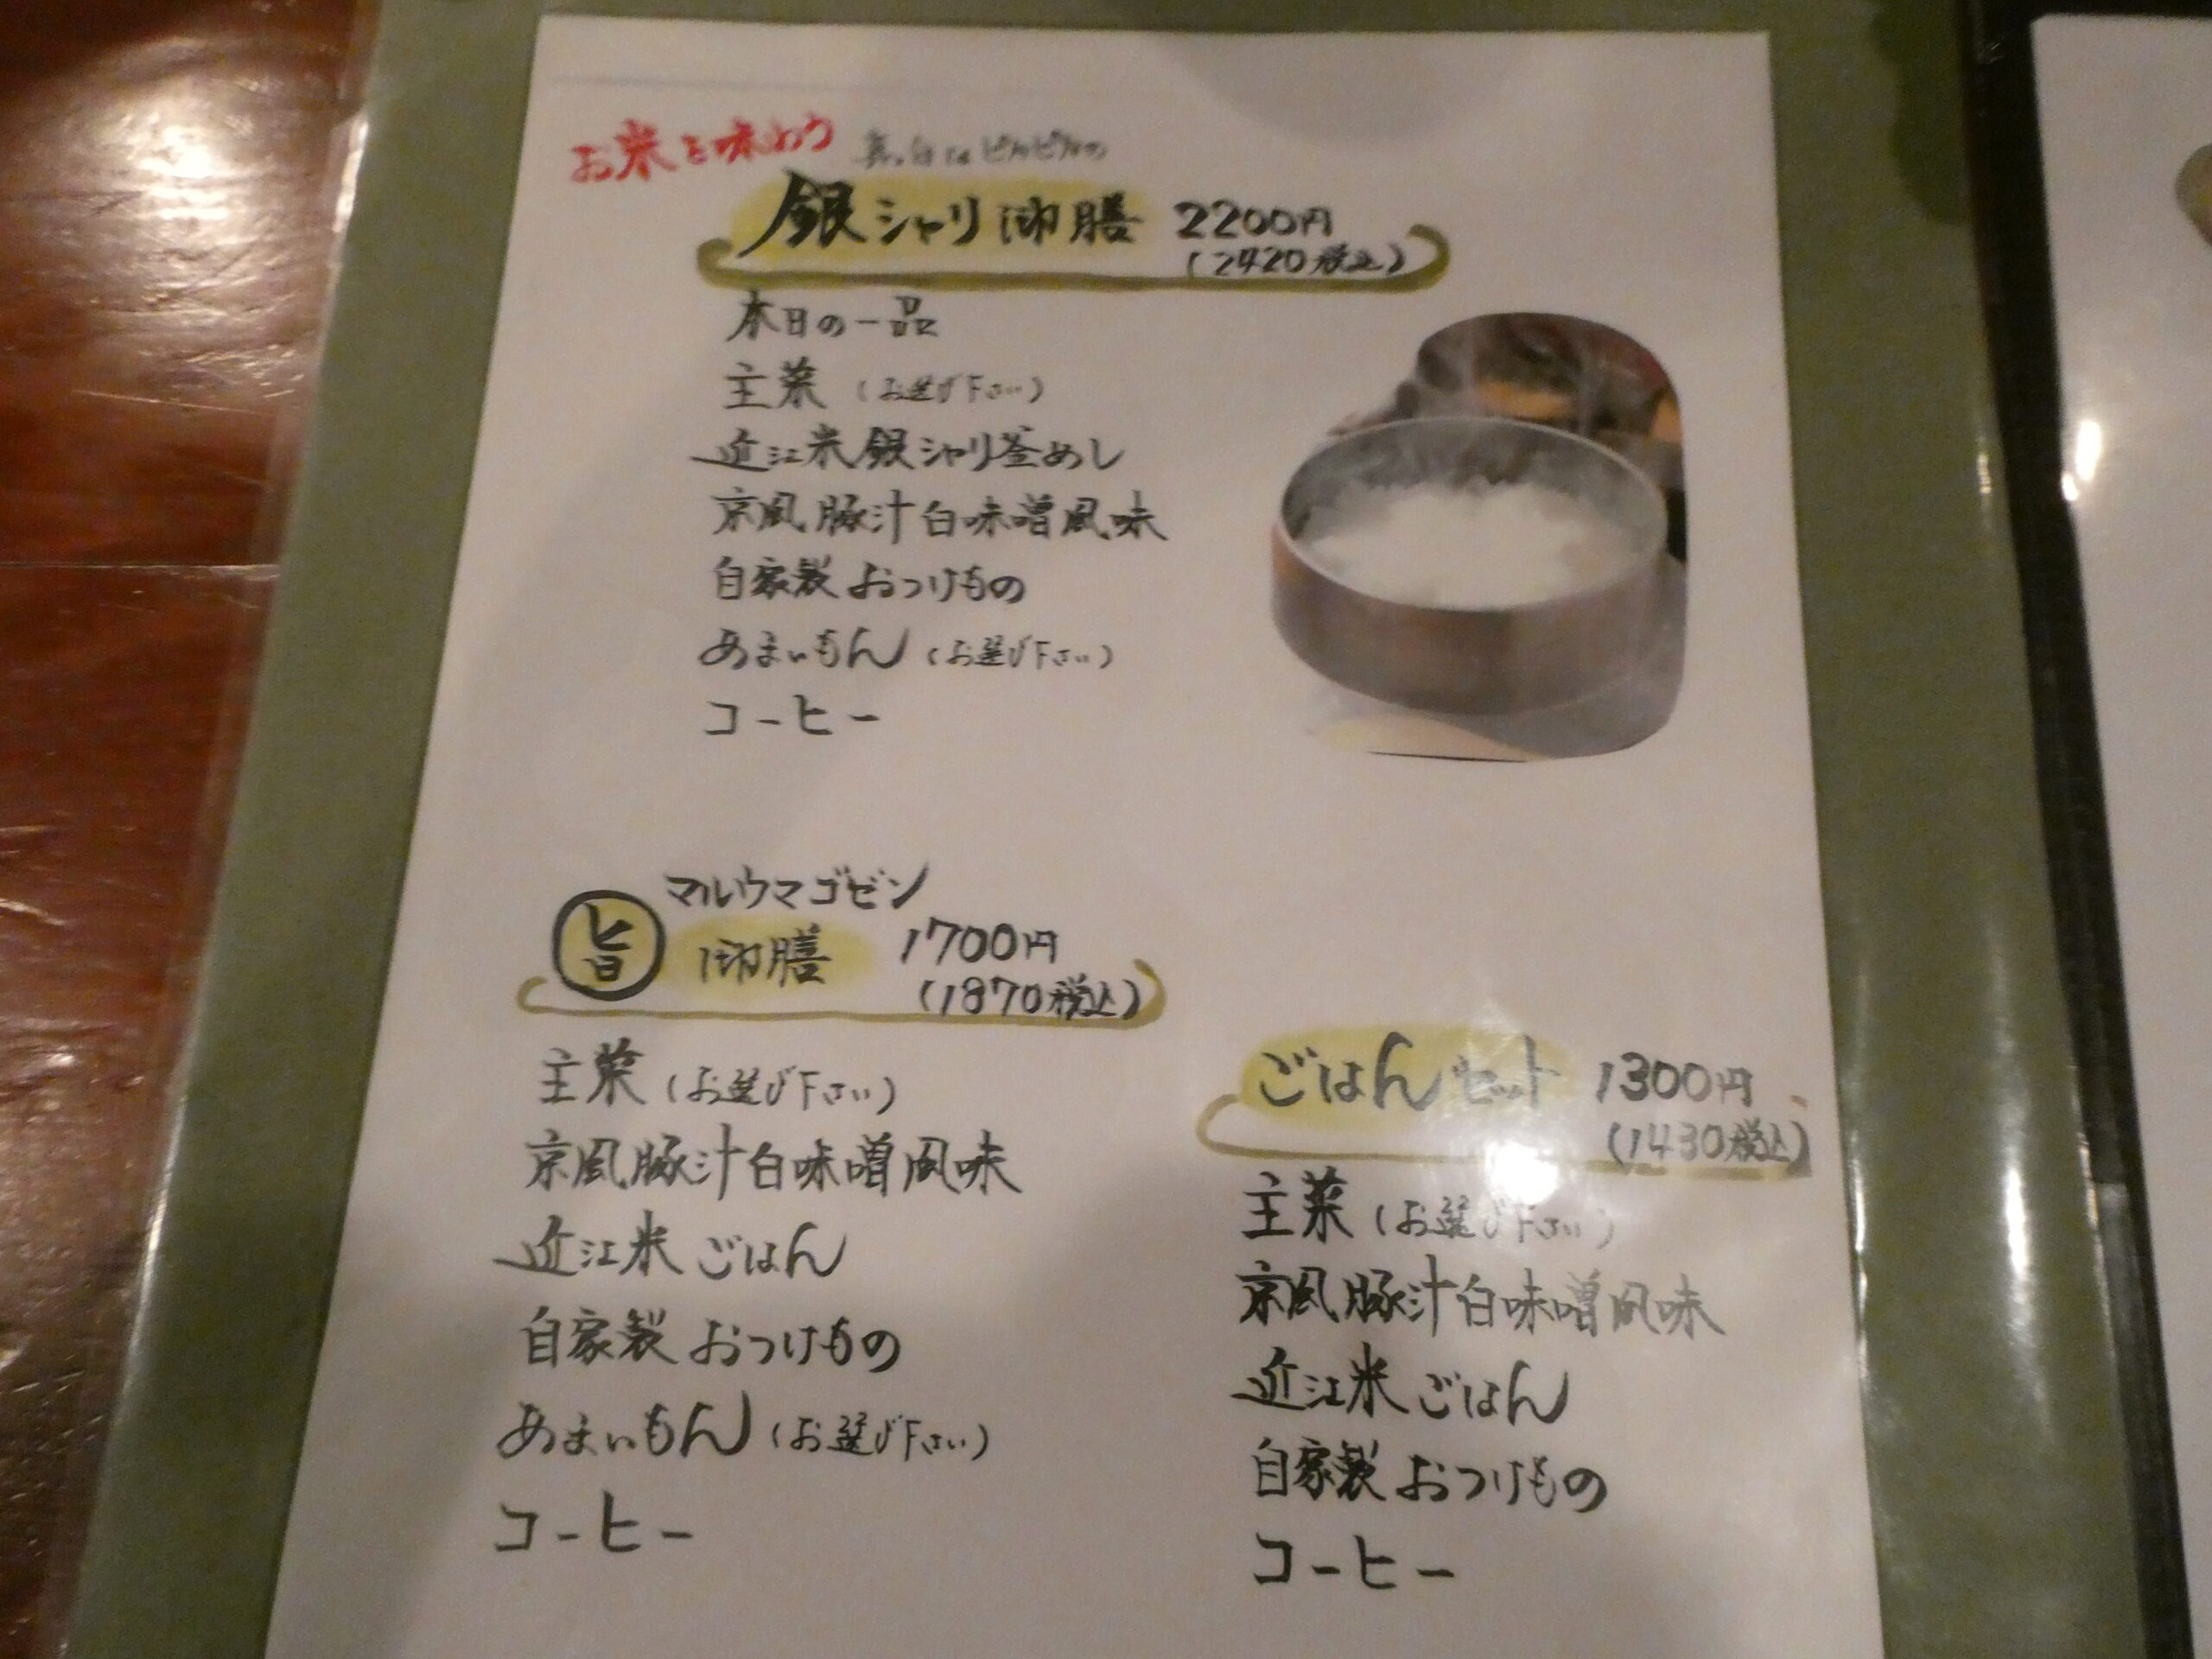 お米を味わう 真っ白はピカピカの
銀シャリ御膳 2200円
(2420税込)
本日の一品
主菜 (お選び下さい)
近江米銀シャリ釜めし
京風豚汁白味噌風味
自家製おつけもの
あまいもん (お選び下さい)
コーヒー
マルウマゴゼン
旨 御膳 1700円
(1870税込)
主菜 (お選び下さい)
京風豚汁白味噌風味
近江米ごはん
自家製おつけもの
あまいもん (お選び下さい)
コーヒー
ごはんセット 1300円
(1430税込)
主菜 (お選び下さい)
京風豚汁白味噌風味
近江米ごはん
自家製おつけもの
コーヒー